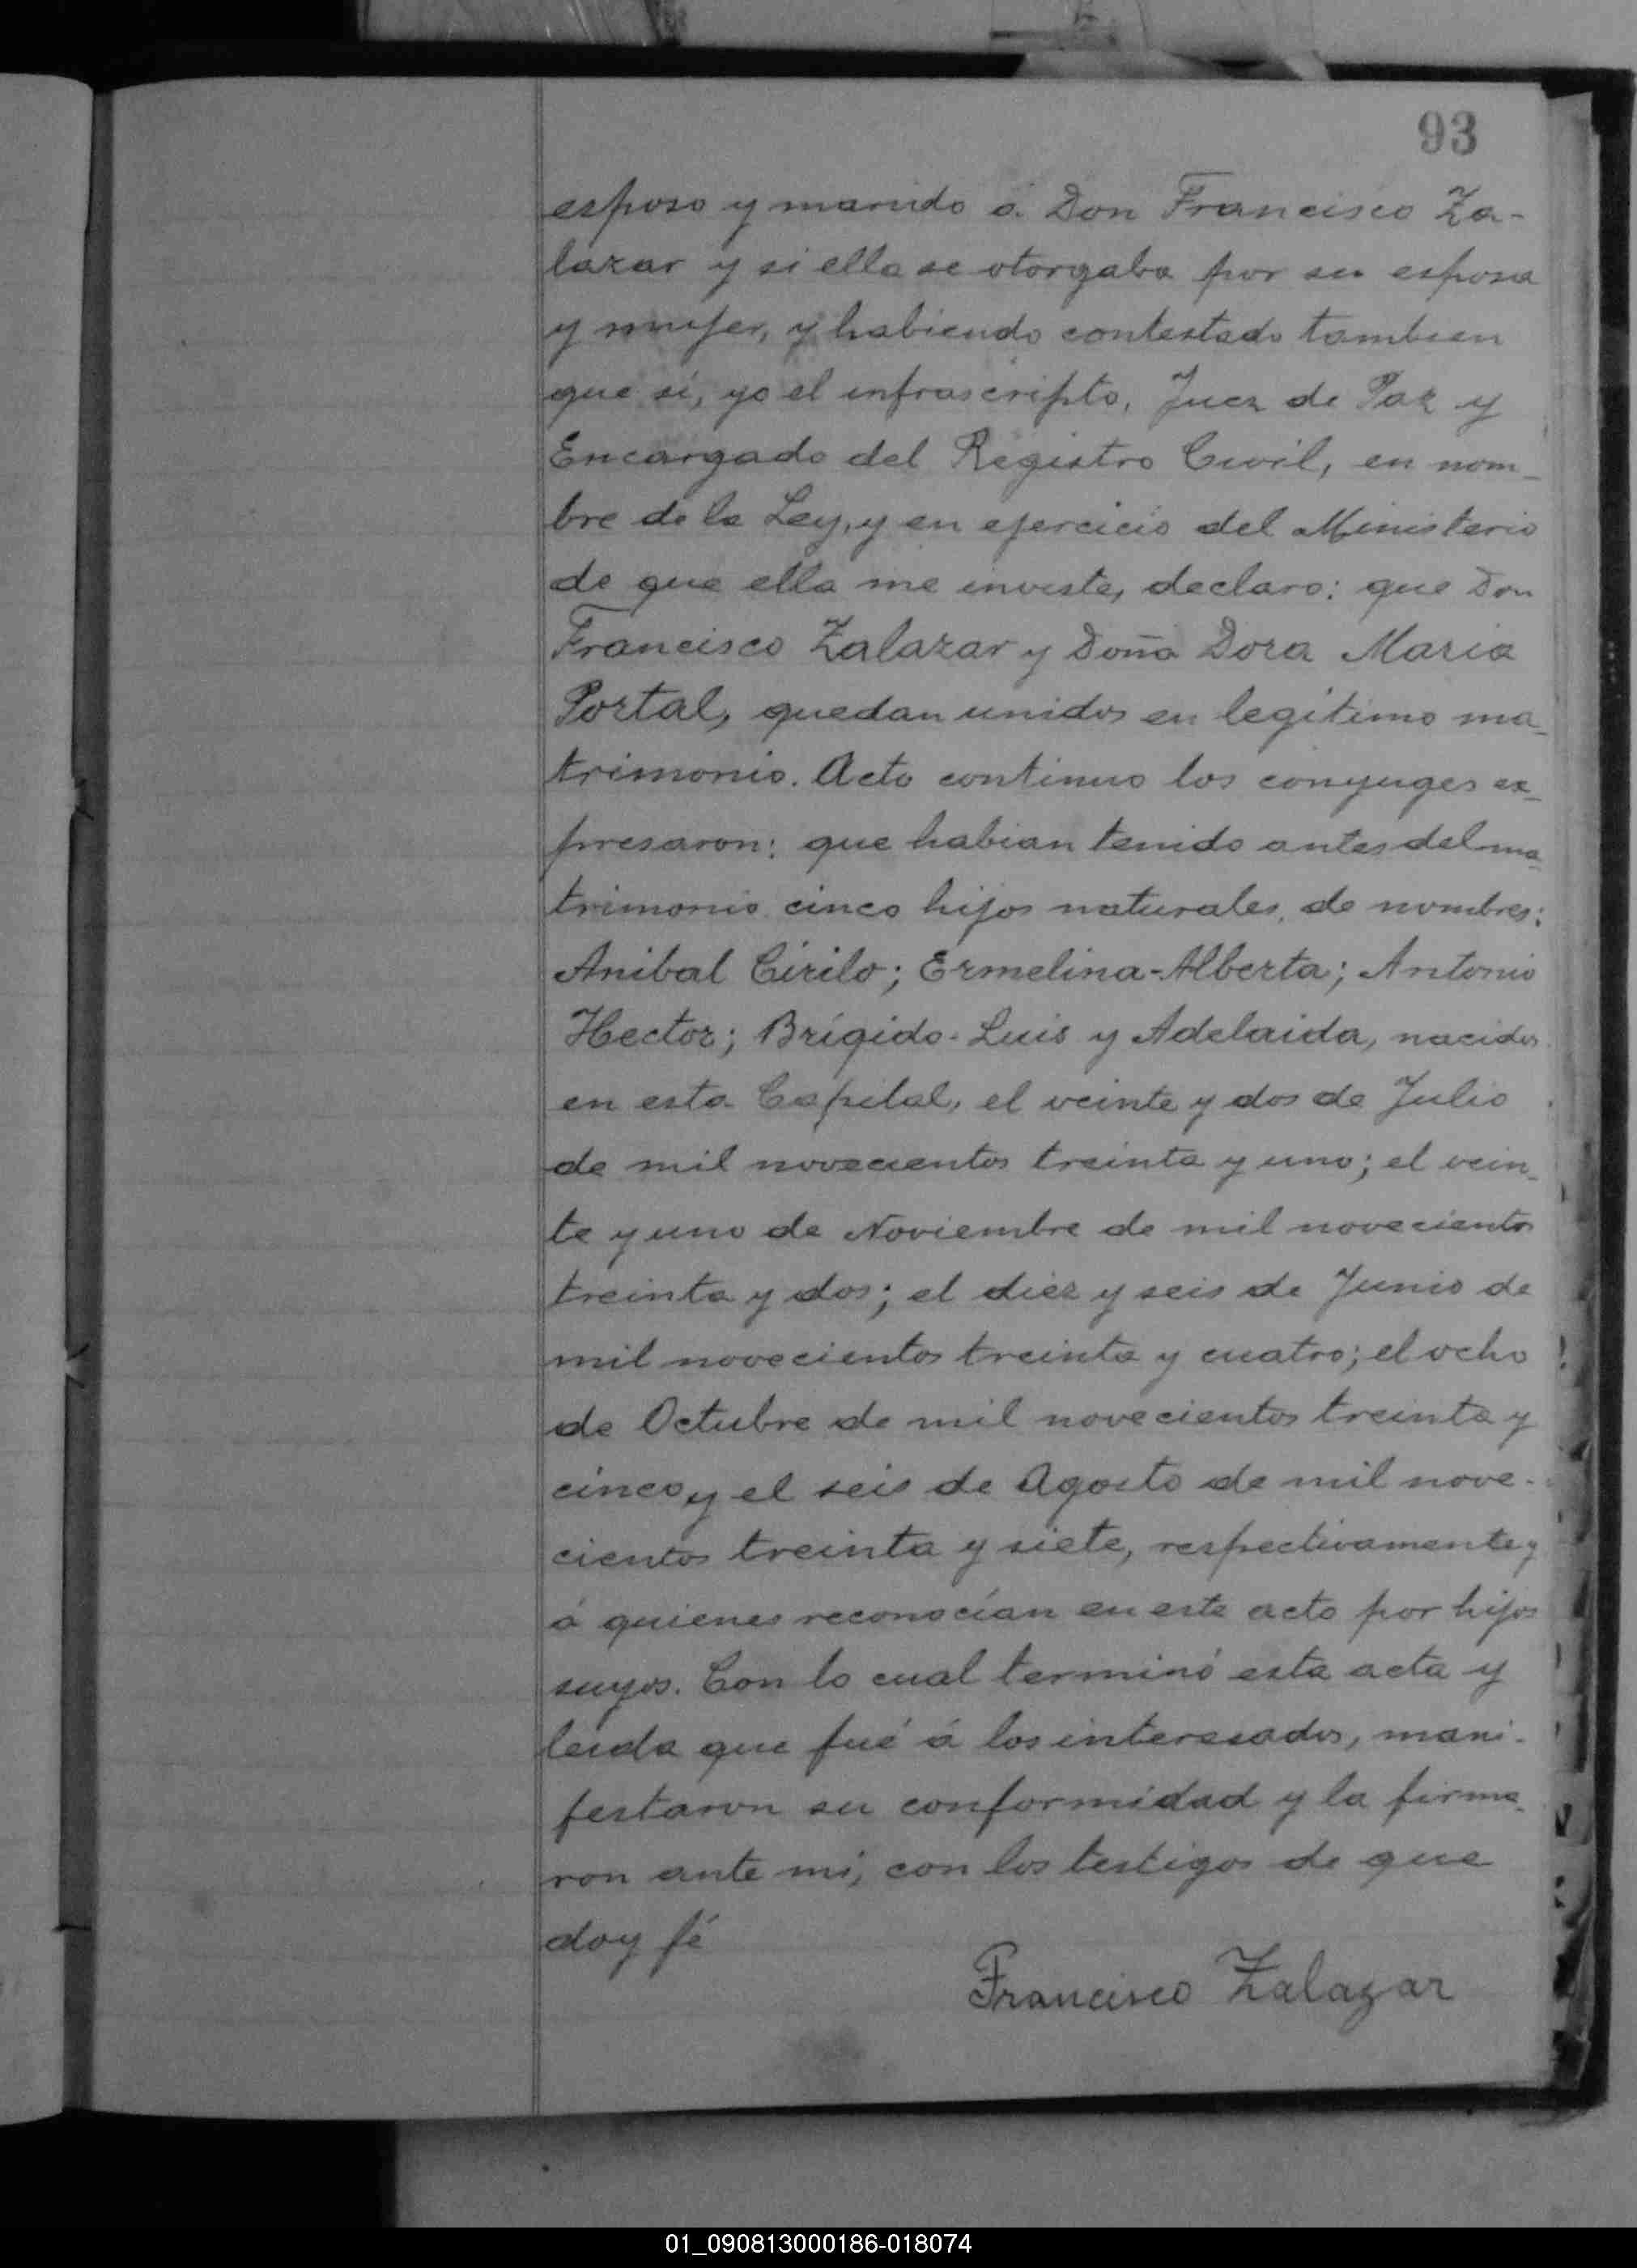 93
esposo y marido á Don Francisco Za-
lazar y si ella se otorgaba por su esposa
y mujer, y habiendo contestado tambien
que si, yo el infrascripto, Juez de Paz y
Encargado del Registro Civil, en nom-
bre de la Ley, y en ejercicio del Ministerio
de que ella me inviste, declaro: que Don
Francisco Zalazar y Doña Dora Maria
Portal, quedan unidos en legítimo ma-
trimonio. Acto continuo los conyuges ex-
presaron: que habian tenido antes del ma-
trimonio cinco hijos naturales, de nombres:
Anibal Cirilo; Ermelina-Alberta; Antonio
Hector; Brígido-Luis y Adelaida, nacidos
en esta Capital, el veinte y dos de Julio
de mil novecientos treinta y uno; el vein-
te y uno de Noviembre de mil novecientos
treinta y dos; el diez y seis de Junio de
mil novecientos treinta y cuatro; el ocho
de Octubre de mil novecientos treinta y
cinco y el seis de Agosto de mil nove-
cientos treinta y siete, respectivamente y
á quienes reconocían en este acto por hijos
suyos. Con lo cual terminó esta acta y
leida que fué á los interesados, mani-
festaron su conformidad y la firma-
ron ante mi, con los testigos de que
doy fé
Francisco Zalazar
01_090813000186-018074